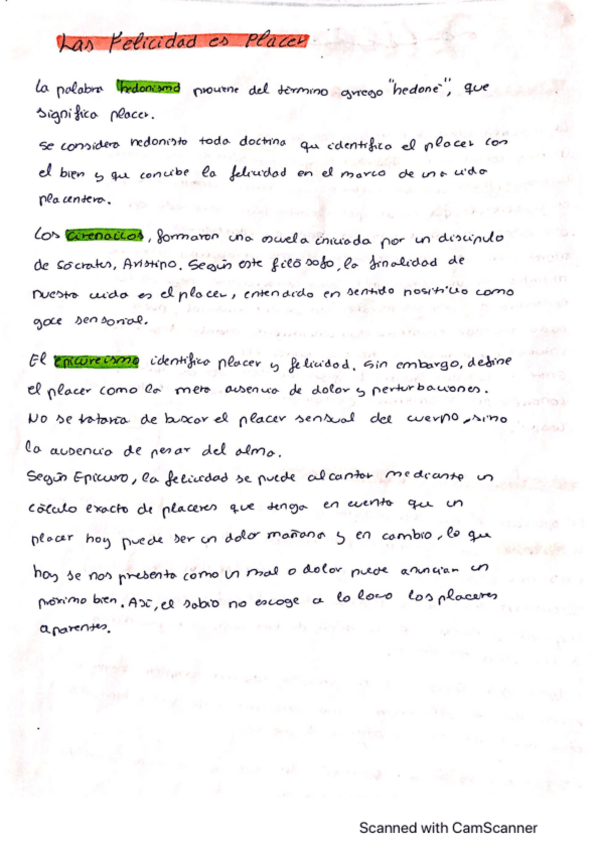 Las Felicidad es Placer
La palabra hedonismo proviene del término griego "hedoné", que
significa placer.
se considera hedonista toda doctrina que identifica el placer con
el bien y que concibe la felicidad en el marco de una vida
placentera.
Los cirenaicos, formaron una escuela iniciada por un discípulo
de Sócrates, Aristipo. Según este filósofo, la finalidad de
nuestra vida es el placer, entendido en sentido positivo como
goce sensorial.
El epicureismo identifica placer y felicidad. Sin embargo, define
el placer como la mera ausencia de dolor y perturbaciones.
No se trataría de buscar el placer sensual del cuerpo, sino
la ausencia de pesar del alma.
Según Epicuro, la felicidad se puede alcanzar mediante un
cálculo exacto de placeres que tenga en cuenta que un
placer hoy puede ser un dolor mañana y en cambio, lo que
hoy se nos presenta como un mal o dolor puede anunciar un
próximo bien. Así, el sabio no escoge a lo loco los placeres
aparentes.
Scanned with CamScanner